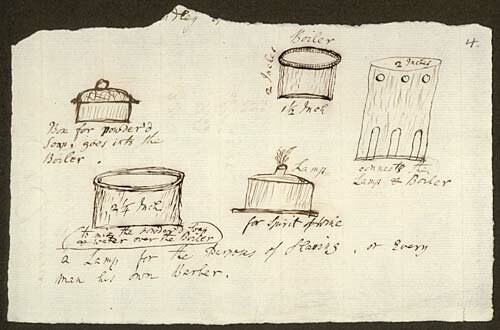 4.
Boiler
2 Inches
1½ Inch
2 Inches
Box for powder'd
Soap, goes into the
Boiler.
connects the
Lamp & Boiler
Lamp
for Spirit of Wine
2¼ Inch
to mix the powder'd Soap
& water over the Boiler
a Lamp for the Purpose of Shaving, or Every
man his own Barber.